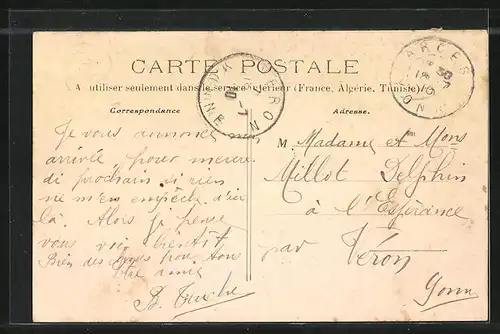 CARTE POSTALE
A utiliser seulement dans le service intérieur (France, Algérie, Tunisie)
Correspondance
Adresse.
VERON
YONNE
ARCES
YONNE
Je vous annonce mon
arrivée, pour mercre
di prochain si rien
ne m'en empêche d'ici
là. Alors je pense
vous voir bientôt
Bien des choses
amie
M. Madame et Mons
Millot Delphin
à l'Espérance
par Véron
Yonne